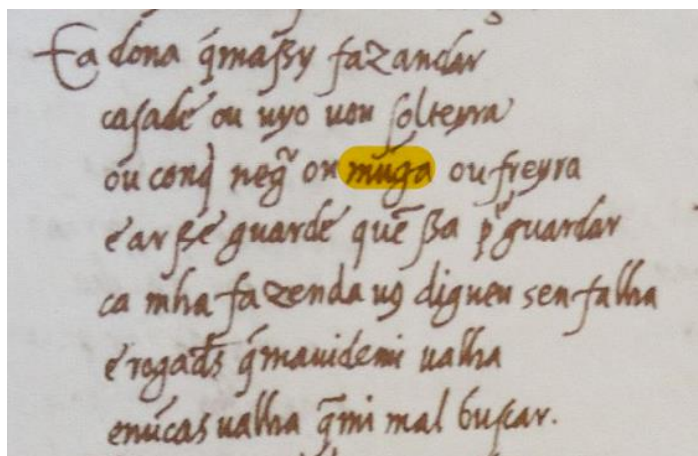 E a dona q̄ maſſy faz andar
caſad e ou uyo uou ſolteyra
ou conq̄ negr̃ ou mũga ou freyra
e ar ße guarde quẽ ßa ꝑ guardar
ca mha fazenda uꝯ digueu sen falha
e rogad̃s q̄ mauid e mi ualha
e nũcas ualha q̄ mi mal buſcar.